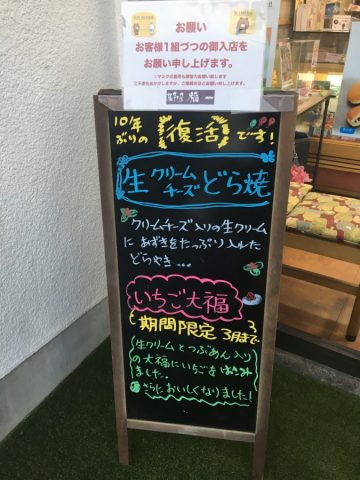 お願い
お客様1組づつの御入店を
お願い申し上げます。
10年
ぶりの 復活です!
生クリーム
チーズどら焼
クリームチーズ入りの生クリーム
に あずきをたっぷり入れた
どらやき…
いちご大福
期間限定 3月まで
生クリームとつぶあん入り
の大福にいちごをはさみ
ました。
さらにおいしくなりました!